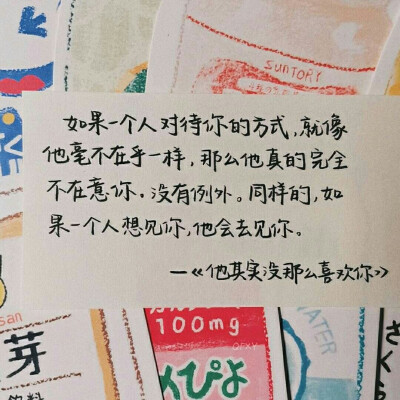 SUNTORY
如果一个人对待你的方式，就像
他毫不在乎一样，那么他真的完全
不在意你．没有例外。同样的，如
果一个人想见你，他会去见你。
—《他其实没那么喜欢你》
san
100mg
芽
WATER
くぴよ
さくら